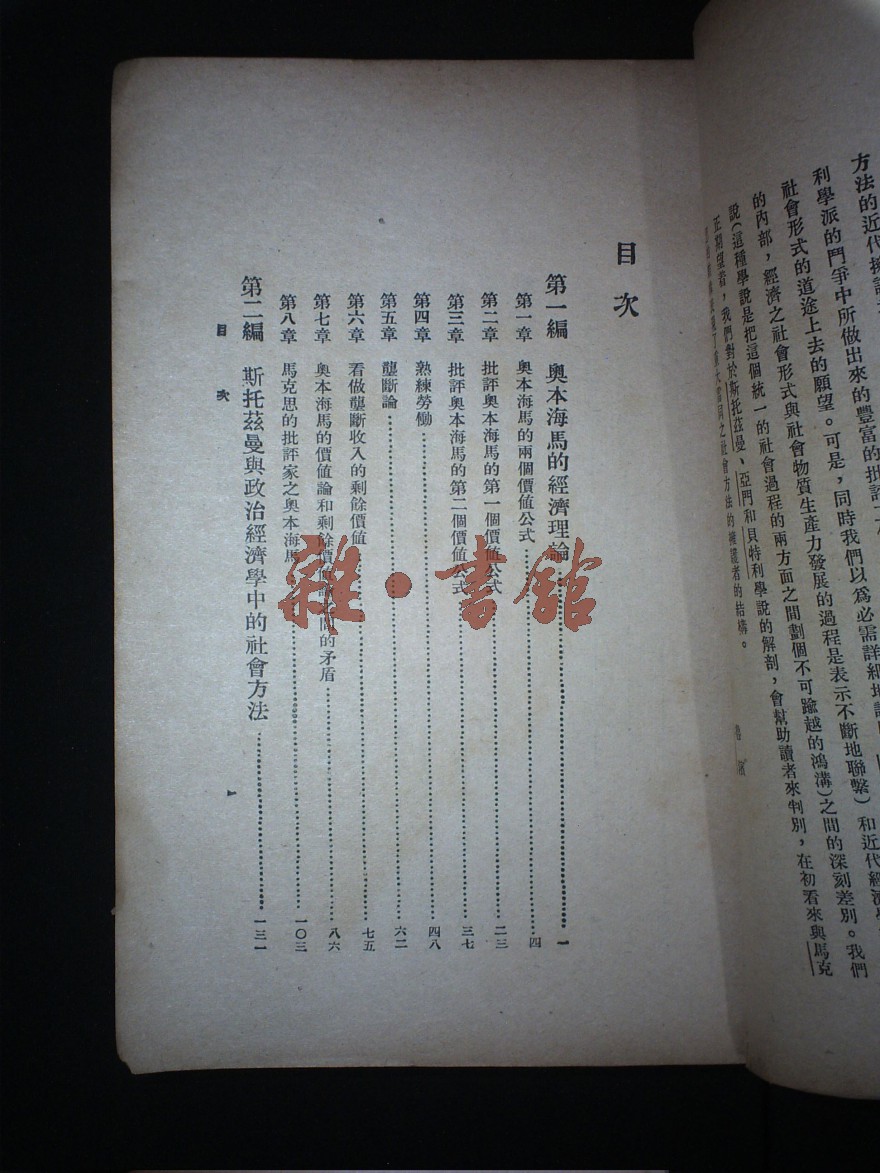 方法的近代
利學派的鬥爭中所做出來的豐富的批評
社會形式的道途上去的願望。可是,同時我們以為必需詳細地
的內部,經濟之社會形式與社會物質生產力發展的過程是表示不斷地聯繫)和近代經濟
說(這種學說是把這個統一的社會過程的兩方面之間劃個不可踰越的鴻溝)之間的深刻差別。我們
正期望着,我們對於斯托茲曼、亞門和貝特利學說的解剖,會幫助讀者來判別,在初看來與馬克
之社會方法的擁護者的結構。
目次
第一編 奧本海馬的經濟理論 一
第一章 奧本海馬的兩個價值公式 四
第二章 批評奧本海馬的第一個價值公式 二三
第三章 批評奧本海馬的第二個價值公式 三七
第四章 熟練勞働 四八
第五章 壟斷論 六二
第六章 看做壟斷收入的剩餘價值 七五
第七章 奧本海馬的價值論和剩餘價值的矛盾 八六
第八章 馬克思的批評家之奧本海馬 一〇三
第二編 斯托茲曼與政治經濟學中的社會方法 一三一
目次 一
雜·書館